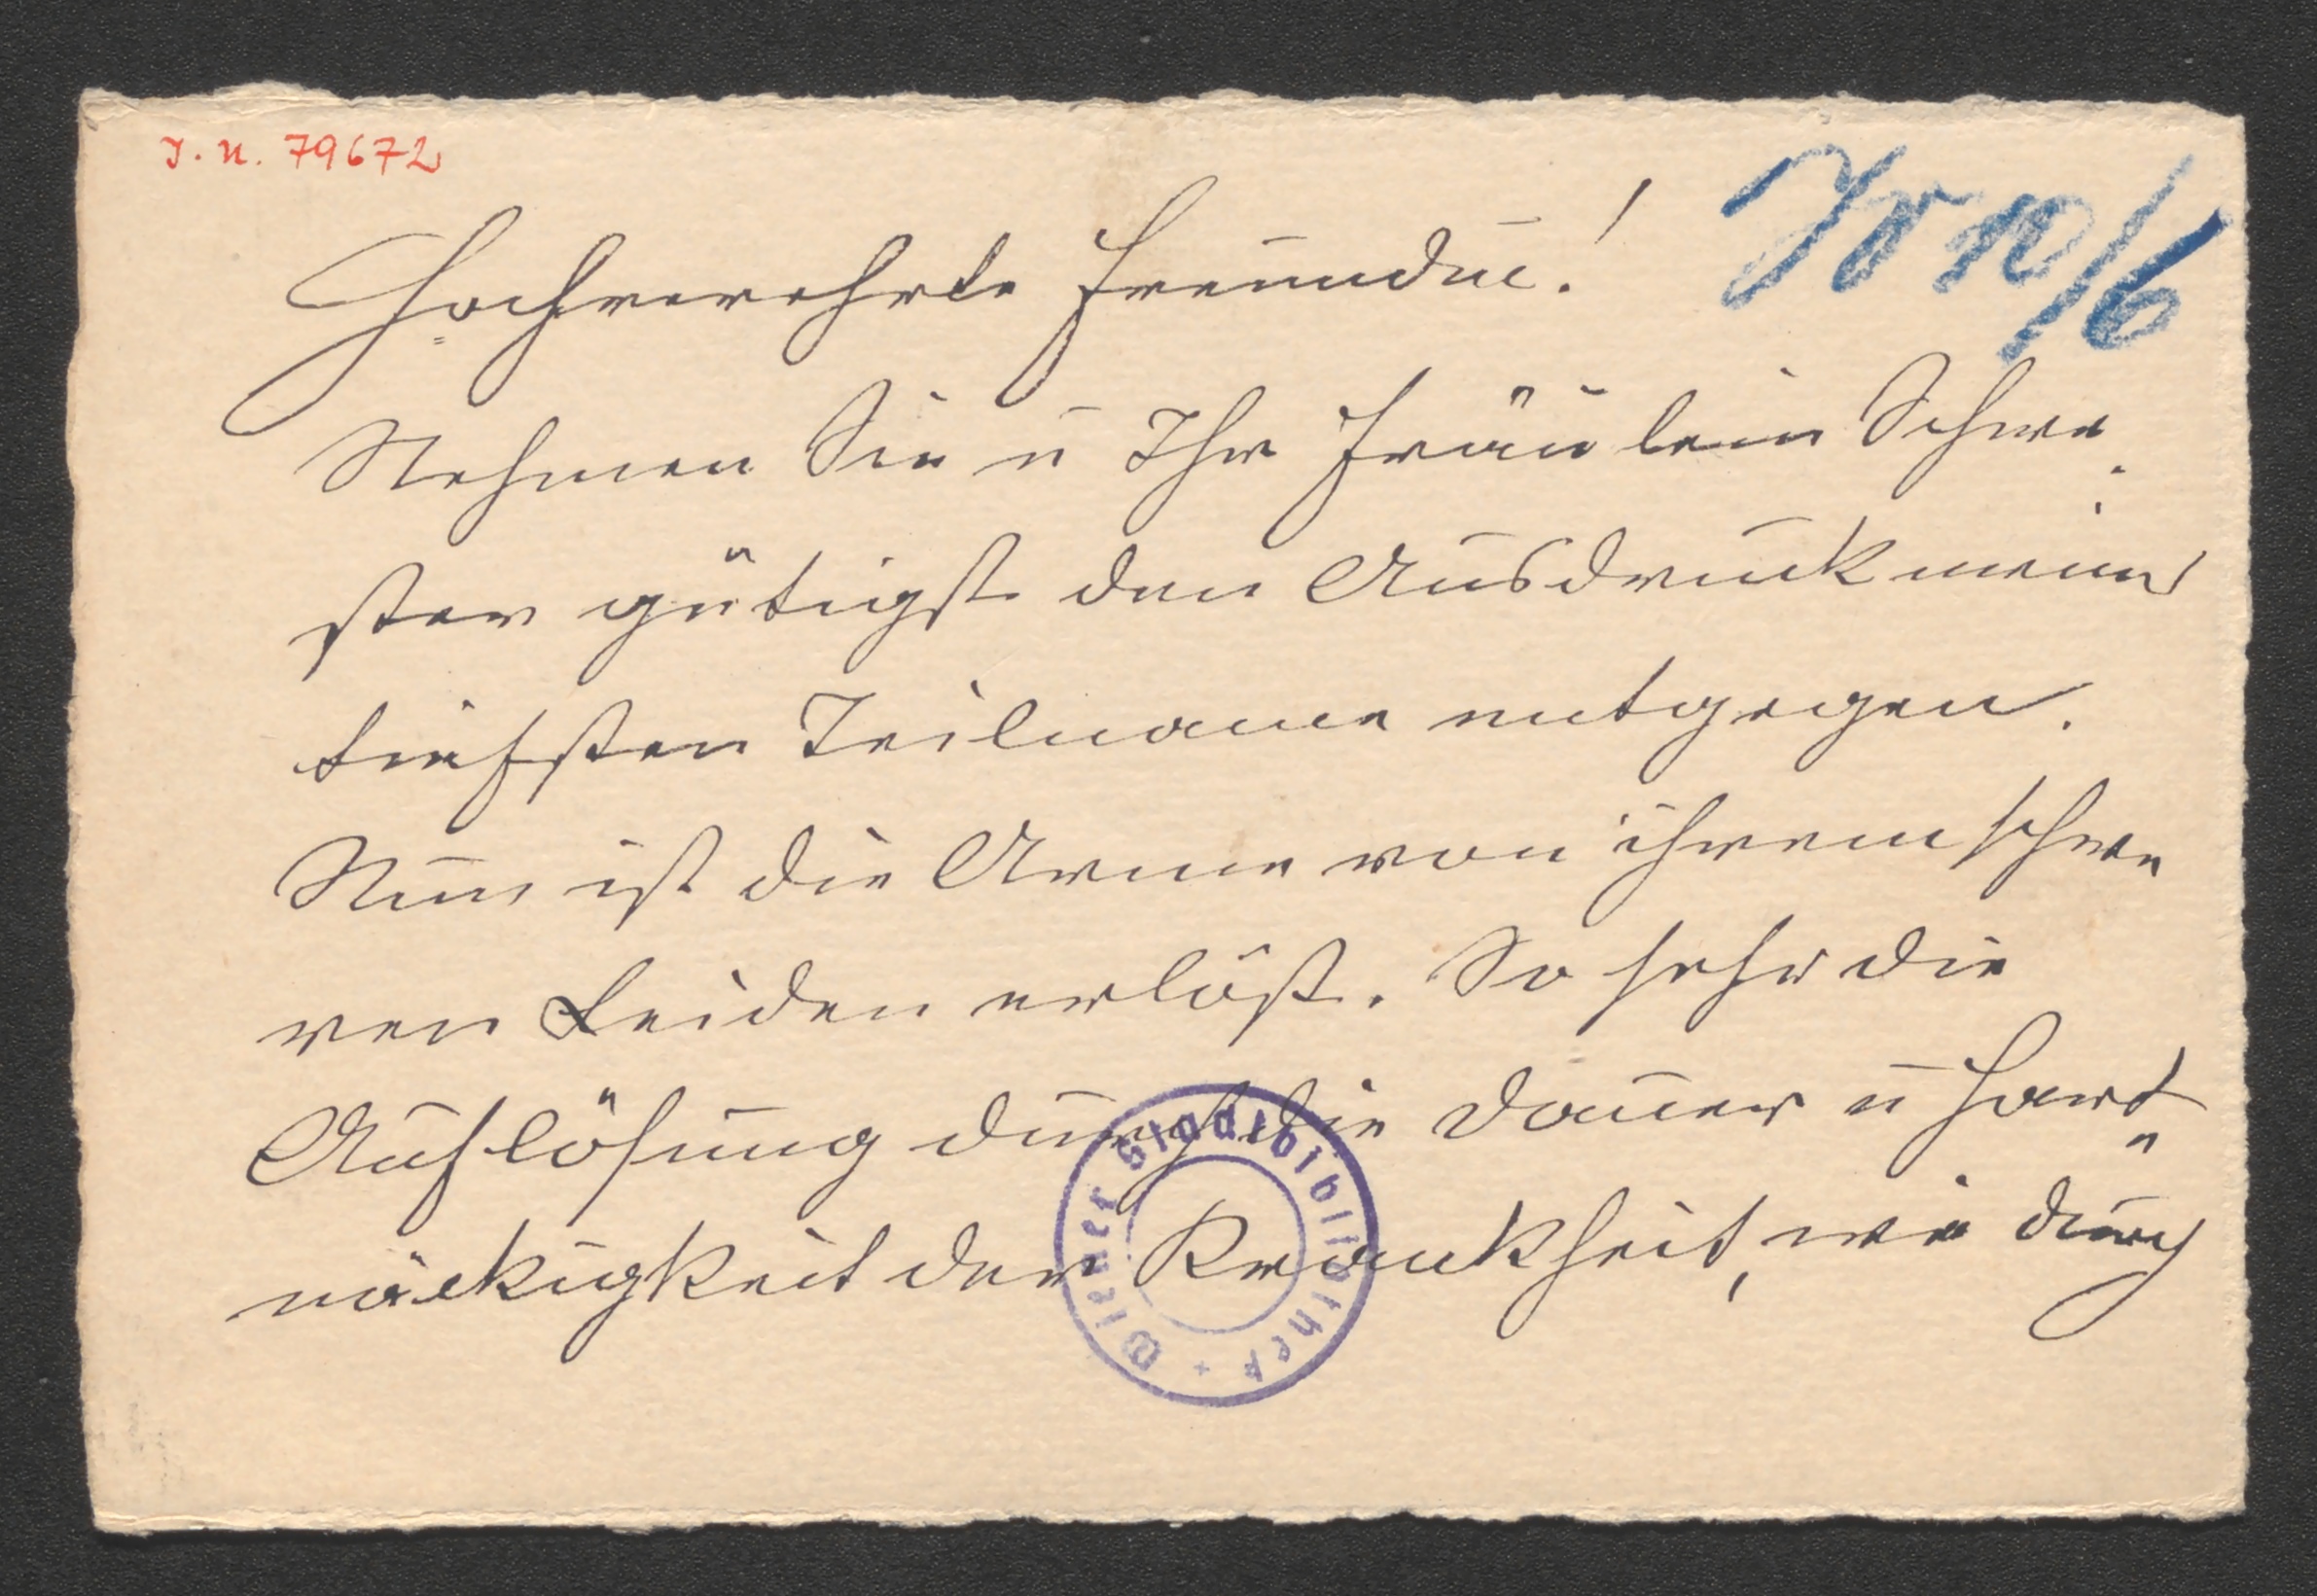 I. N. 79672
Hochverehrte Freundin!
Nehmen Sie u Ihr Fräulein Schwe-
ster gütigst den Ausdruck meiner
tiefsten Teilname entgegen.
Nun ist die Arme von ihrem schwe
ren Leiden erlöst. So sehr die
Auflösung durch die Dauer u Hart-
näckigkeit der Krankheit, wie durch
Wiener Stadtbibliothek